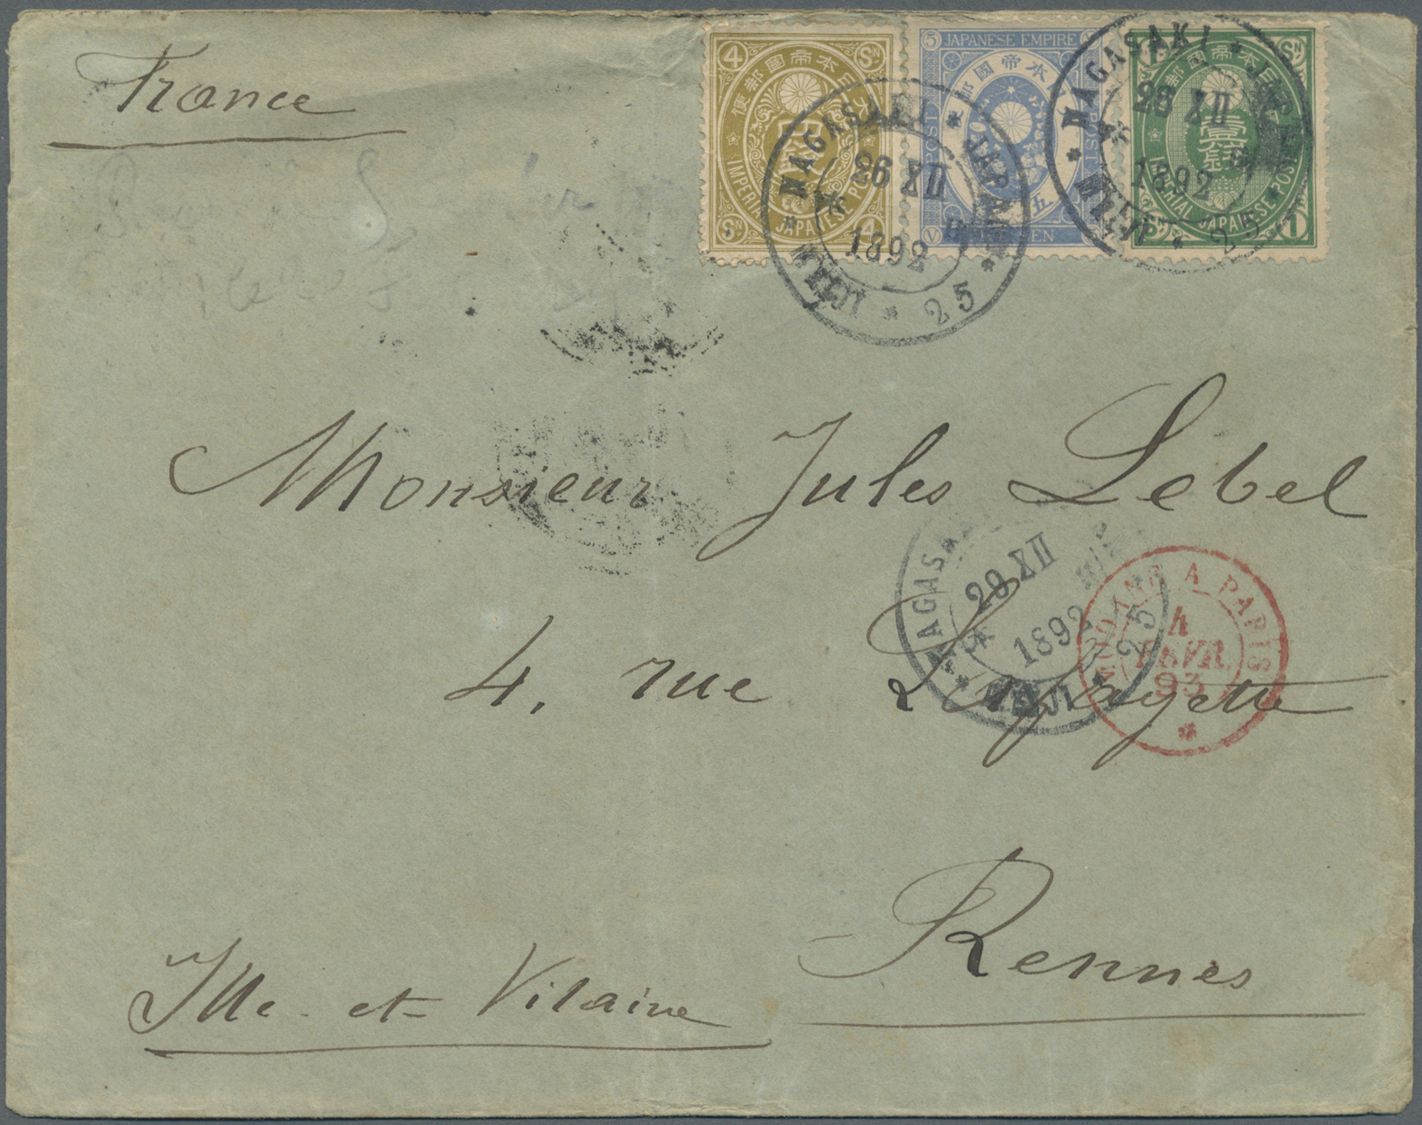 France
4 SN 大日本帝國郵便 IMPERIAL JAPANESE POST SN
5 JAPANESE EMPIRE
POST
V
大日本帝國郵便 SN 壹錢 IMPERIAL JAPANESE POST 1
NAGASAKI * JAPAN * 25 * MEIJI *
26 XII
1892
NAGASAKI * JAPAN * 25 * MEIJI *
26 XII
1892
Monsieur Jules Lebel
NAGASAKI 25 * MEIJI *
29 XII
1892
MODANE A PARIS
4
FEVR.
93
*
4, rue Lafayette
Rennes
Ille-et-Vilaine